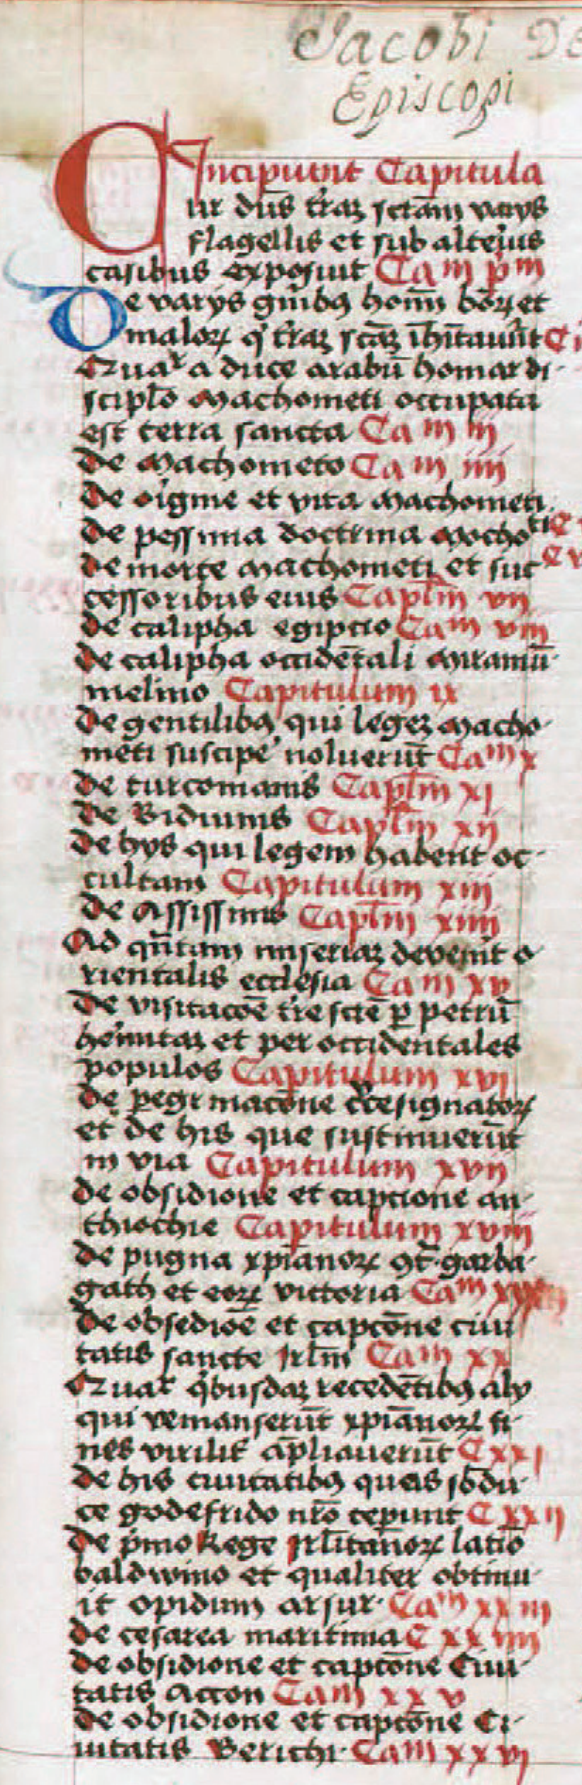 Jacobi De
Episcopi
Incipiunt Capitula
Cur dn̄s t̄raȝ sc̄tam varijs
flagellis et sub alternis
casibus exposuit Cam pm
De varijs gn̄ibꝰ hom̄ bōrꝝ et
malorꝝ q t̄raȝ sc̄aȝ īhītauūt C
Qualr a duce arabū homar di-
scipl̄o Machometi occupata
est terra sancta Cam iii
De Machometo Cam iiii
De origine et vita Machometi
De pessima doctrina Macho ti C
De morte Machometi et suc C v
cessoribus eius Capl̄m vii
De calipha egipcio Cam viii
De calipha occidētali Miramū-
melino Capitulum ix
De gentilibꝰ qui legeȝ Macho-
meti suscipe noluerūt Cam x
De turcomanis Capl̄m xi
De Bidiuinis Capl̄m xii
De hys qui legem habent oc-
cultam Capitulum xiii
De Assissinis Capl̄m xiiii
Ad qn̄tam miseriaȝ devenit o-
rientalis ecclesia Cam xv
De visitacōe tre scte ꝑ petrū
hemitaȝ et per occidentales
populos Capitulum xvi
De ꝑegrinacōne cͨesignatorꝝ
et de his que sustinuerūt
in via Capitulum xvii
De obsidione et capcione an-
thiochie Capitulum xviii
De pugna xp̄ianorꝝ ꝯt̄ garba-
gath et eorꝝ victoria Cam
De obsedioē et capcōne ciui
tatis sancte Jrl̄m Cam xx
Qualr qͥbusdaȝ recedētibꝰ alij
qui remanserūt xp̄ianorꝝ fi-
nes virilit̄ āpliauerūt C xxi
De his ciuitatibꝰ quas sb̄ du-
ce godefrido nr̄o ceperunt C xxii
De pͥmo Rege Jrl̄itan̄orꝝ latīo
baldwino et qualiter obtinu-
it opidum arsur Cam xxiii
De cesarea maritima C xxiiii
De obsidione et capcōne Ciui-
tatis Accon Cam xxv
De obsidione et capcōne Ci-
uitatis Berithi Cam xxvi